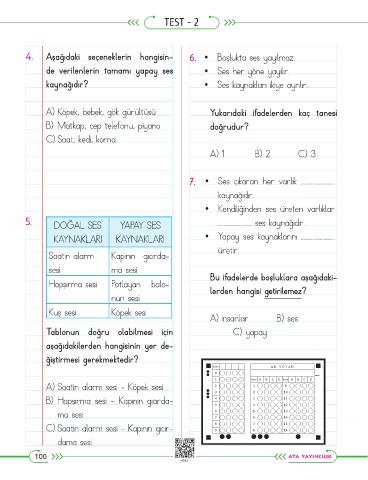 TEST - 2
4. Aşağıdaki seçeneklerin hangisin-
de verilenlerin tamamı yapay ses
kaynağıdır?
A) Köpek, bebek, gök gürültüsü
B) Matkap, cep telefonu, piyano
C) Saat, kedi, korna
5.
DOĞAL SES KAYNAKLARI
YAPAY SES KAYNAKLARI
Saatin alarm sesi
Kapının gıcırda-
ma sesi
Hapşırma sesi
Patlayan balo-
nun sesi
Kuş sesi
Köpek sesi
Tablonun doğru olabilmesi için
aşağıdakilerden hangisinin yer de-
ğiştirmesi gerekmektedir?
A) Saatin alarm sesi - Köpek sesi
B) Hapşırma sesi - Kapının gıcırda-
ma sesi
C) Saatin alarm sesi - Kapının gıcır-
dama sesi
6. • Boşlukta ses yayılmaz.
• Ses her yöne yayılır.
• Ses kaynakları ikiye ayrılır.
Yukarıdaki ifadelerden kaç tanesi
doğrudur?
A) 1 B) 2 C) 3
7. • Ses çıkaran her varlık ..............
kaynağıdır.
• Kendiliğinden ses üreten varlıklar
.............. ses kaynağıdır.
• Yapay ses kaynaklarını ..............
üretir.
Bu ifadelerde boşluklara aşağıdaki-
lerden hangisi getirilemez?
A) insanlar B) ses
C) yapay
AD SOYAD
100
ATA YAYINCILIK